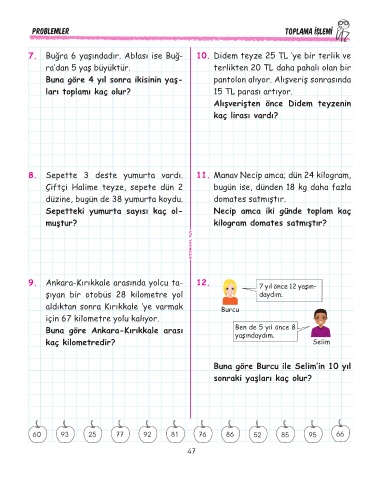 PROBLEMLER
TOPLAMA İŞLEMİ
7. Buğra 6 yaşındadır. Ablası ise Buğ-
ra'dan 5 yaş büyüktür.
Buna göre 4 yıl sonra ikisinin yaş-
ları toplamı kaç olur?
8. Sepette 3 deste yumurta vardı.
Çiftçi Halime teyze, sepete dün 2
düzine, bugün de 38 yumurta koydu.
Sepetteki yumurta sayısı kaç ol-
muştur?
9. Ankara-Kırıkkale arasında yolcu ta-
şıyan bir otobüs 28 kilometre yol
aldıktan sonra Kırıkkale 'ye varmak
için 67 kilometre yolu kalıyor.
Buna göre Ankara-Kırıkkale arası
kaç kilometredir?
10. Didem teyze 25 TL 'ye bir terlik ve
terlikten 20 TL daha pahalı olan bir
pantolon alıyor. Alışveriş sonrasında
15 TL parası artıyor.
Alışverişten önce Didem teyzenin
kaç lirası vardı?
11. Manav Necip amca; dün 24 kilogram,
bugün ise, dünden 18 kg daha fazla
domates satmıştır.
Necip amca iki günde toplam kaç
kilogram domates satmıştır?
12.
7 yıl önce 12 yaşın-
daydım.
Burcu
Ben de 5 yıl önce 8
yaşındaydım.
Selim
Buna göre Burcu ile Selim'in 10 yıl
sonraki yaşları kaç olur?
60 93 25 77 92 81 76 86 52 85 95 66
47